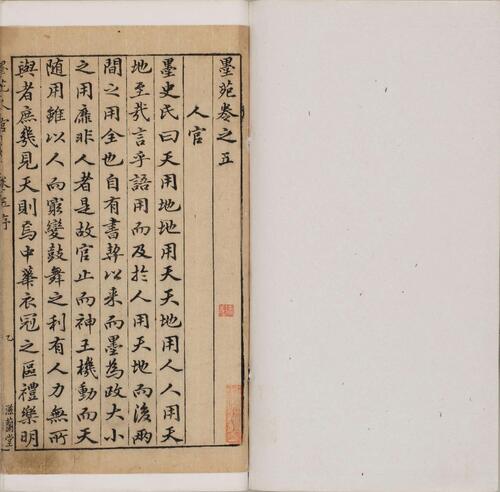 墨苑卷之五
人官
墨史氏曰天用地地用天天地用人人用天
地至哉言乎語用而及於人用天地而後兩
間之用全也自有書契以來而墨為政大小
之用靡非人者是故官止而神王機動而天
隨用雖以人而窮變鼓舞之利有人力無所
與者庶幾見天則焉中華衣冠之區禮樂明
墨苑人官
卷五序
滋蘭堂